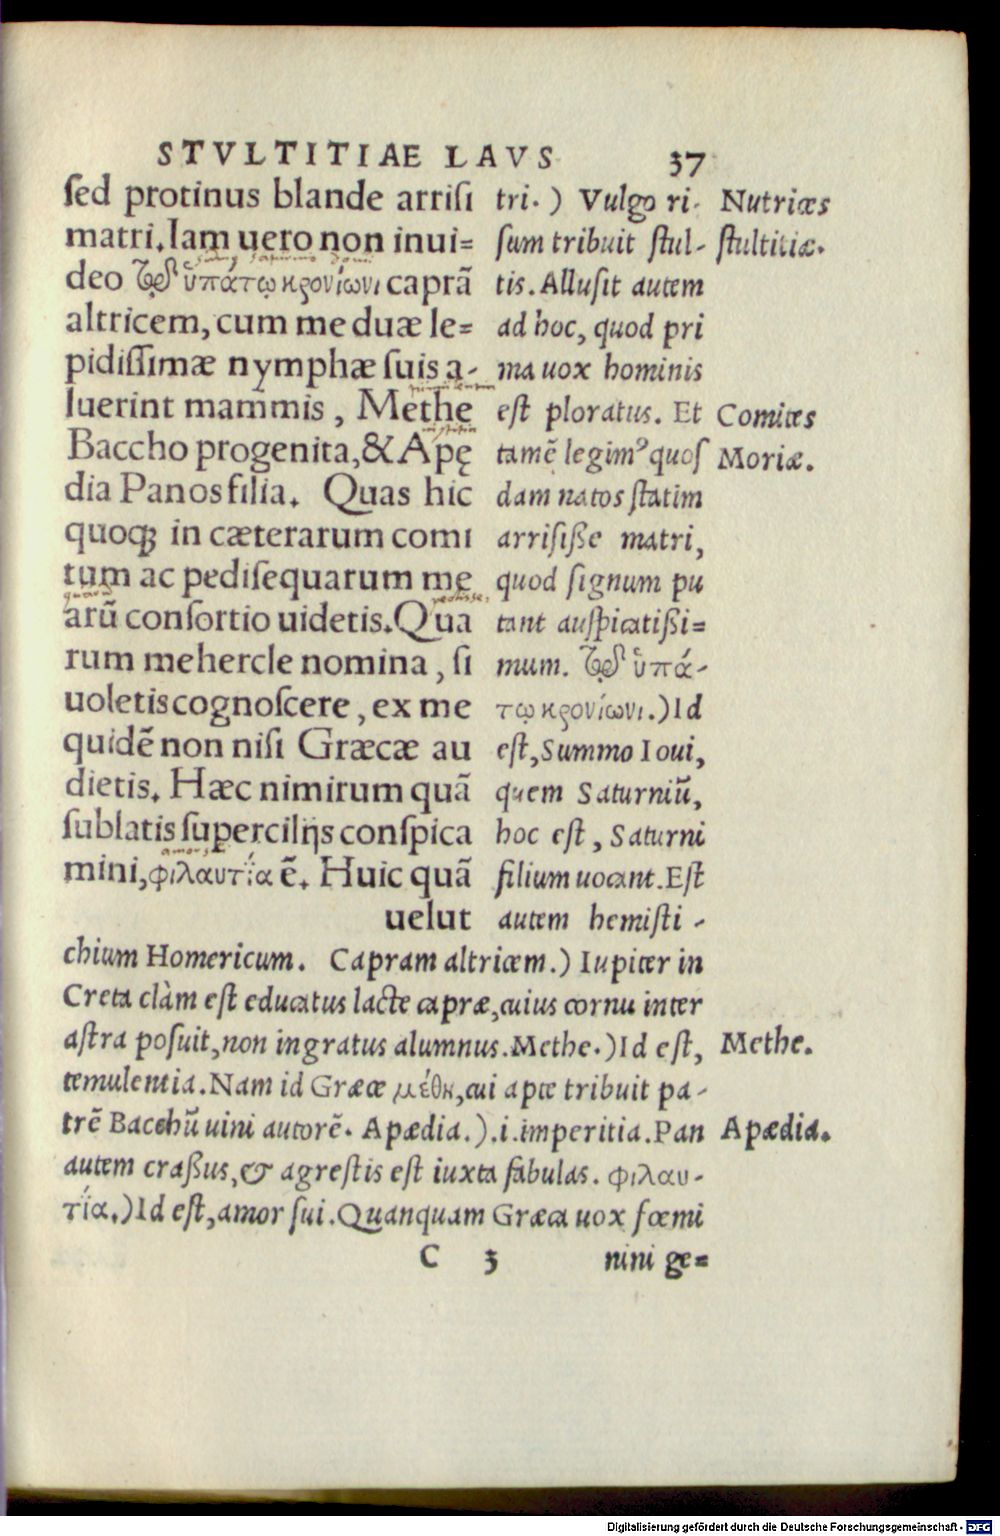 STVLTITIAE LAVS 37
ſed protinus blande arriſi
matri. Iam uero non inui=
deo ὑπάτῳ κρονίωνι caprã
altricem, cum me duæ le=
pidiſſimæ nymphæ ſuis a-
luerint mammis, Methe
Baccho progenita, & Apę
dia Panos filia. Quas hic
quoq; in cæterarum comi
tum ac pediſequarum me
arũ conſortio uidetis. Qua
rum mehercle nomina, ſi
uoletis cognoſcere, ex me
quidẽ non niſi Græcæ au
dietis. Hæc nimirum quã
ſublatis ſupercilijs conſpica
mini, φιλαυτία ẽ. Huic quã
uelut
tri.) Vulgo ri-
ſum tribuit ſtul-
tis. Alluſit autem
ad hoc, quod pri
ma uox hominis
eſt ploratus. Et
tamẽ legimꝰ quoſ
dam natos ſtatim
arriſiße matri,
quod ſignum pu
tant auſpicatißi=
mum. ὑπά-
τῳ κρονίωνι.) Id
eſt, Summo Ioui,
quem Saturniũ,
hoc eſt, Saturni
filium uocant. Eſt
autem hemiſti-
chium Homericum. Capram altricem.) Iupiter in
Creta clàm eſt educatus lacte capræ, cuius cornu inter
aſtra poſuit, non ingratus alumnus. Methe.) Id eſt,
temulentia. Nam id Græce μέθη, cui apte tribuit pa-
trẽ Bacchũ uini autorẽ. Apædia.) .i. imperitia. Pan
autem craßus, & agreſtis eſt iuxta fabulas. φιλαυ-
τία.) Id eſt, amor ſui. Quanquam Græca uox fœmi
C 3 nini ge=
Nutrices
ſtultitiæ.
Comites
Moriæ.
Methe.
Apædia.
Digitalisierung gefördert durch die Deutsche Forschungsgemeinschaft - DFG